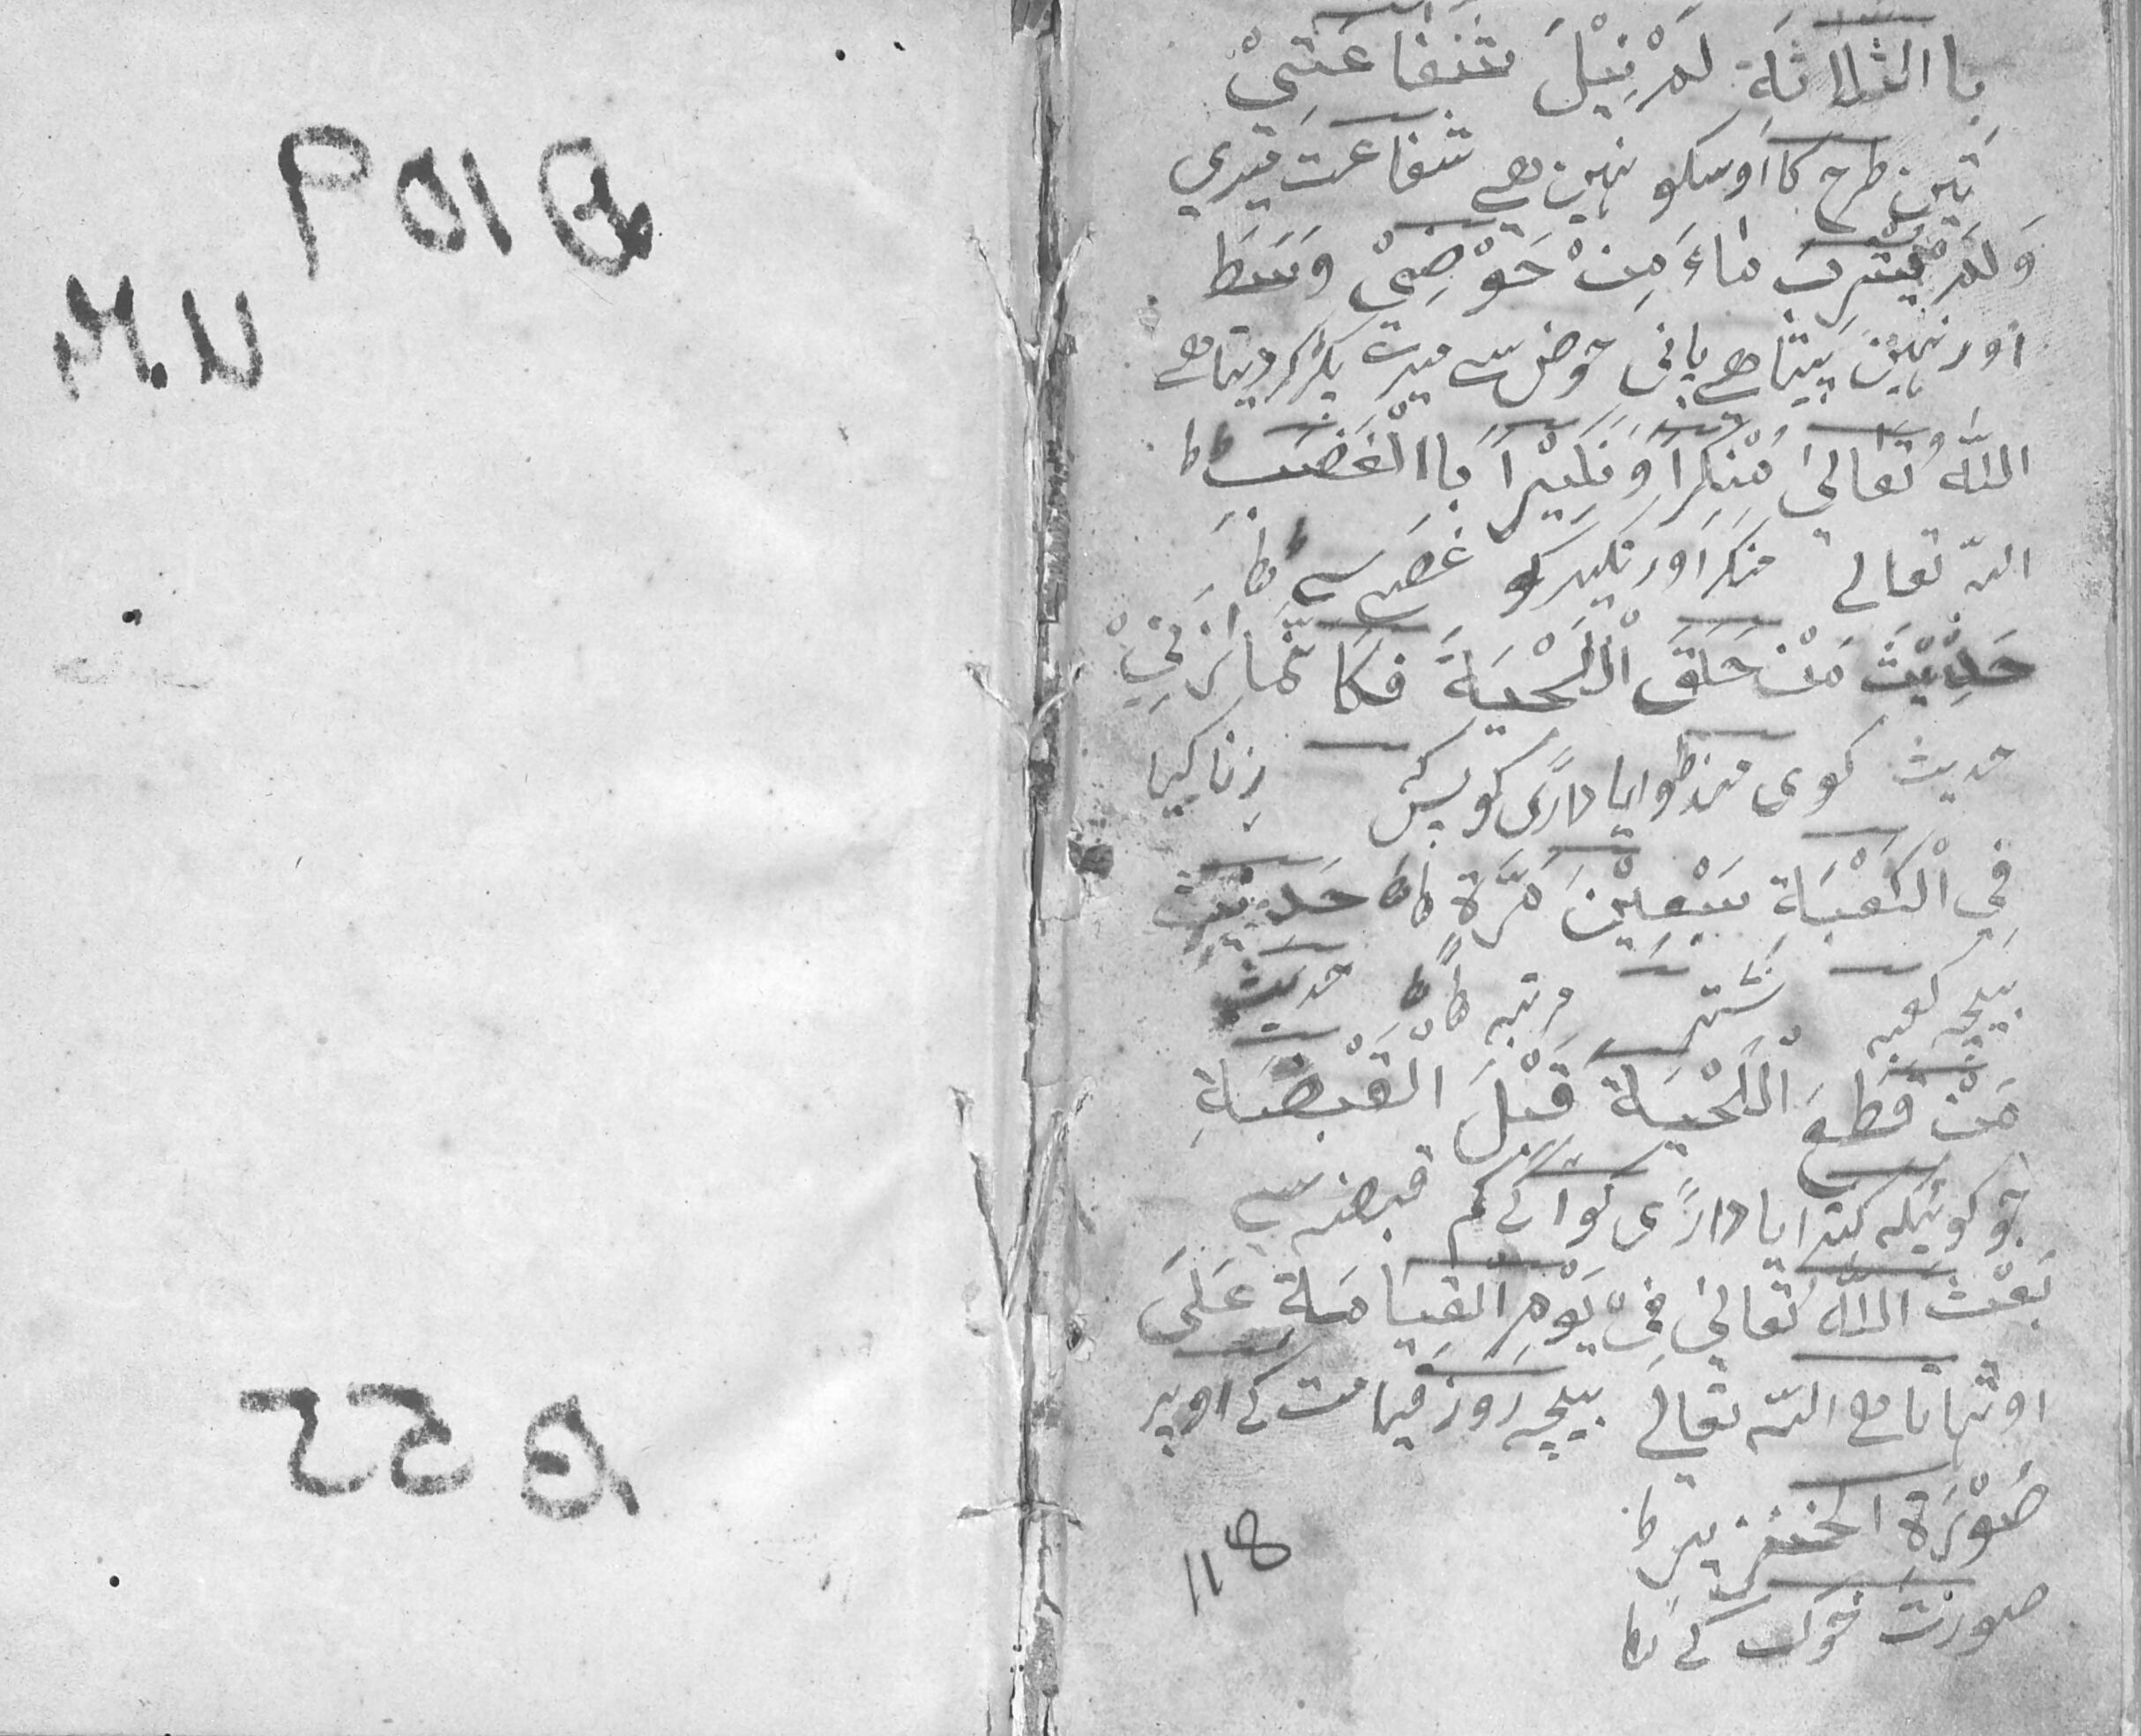 P01Q
M.N
22Q
بِا الثَلَاثَةِ لَمْ نِیْلَ شَفَاعَتِیْ
تین طرح کا اوسکو نہین ہے شفاعت میری
وَلَمْ یَشْرِبَ مَاءَ مِنْ حَوْضِیْ وَسَطَ
اور نہین پیتا ہے پانی حوض سے میرے کر دیتا ہے
اللّٰهُ تَعَالیٰ مُنْکِرَاً وَنَکِیْرَاً بِا الْغَضَبِ ط
اللّہ تعالے منکر اور نکیر کو غصے سے ط
حَدِیْثَ مَنْ حَلَقَ الْلَحْیَةَ فَکَاَنَّمَا زَنِیْ
حدیث کوی منڈوایا داڑی کو زنا کیا
فِی الْکَعْبَةِ سَبْعِیْنَ مَرَّةً ط حَدِیْث
بیچہ کعبہ ستر مرتبہ ط حدیث
مَنْ قَطَعَ الْلَحْیَةَ قَبْلَ الْقَبْضَةِ
جو کوئیکہ کترایا داڑی کو اگے کم قبضہ سے
بَعْثَ اللّٰهُ تَعَالیٰ فِیْ یَوْمِ الْقِیَامَةِ عَلَیَ
اوٹہاتا ہے اللّہ تعالے بیچہ روز قیامت کے اوپر
صُوْرَةِ الْخَنْزِیْر ط
صورت خوک کے ط
118